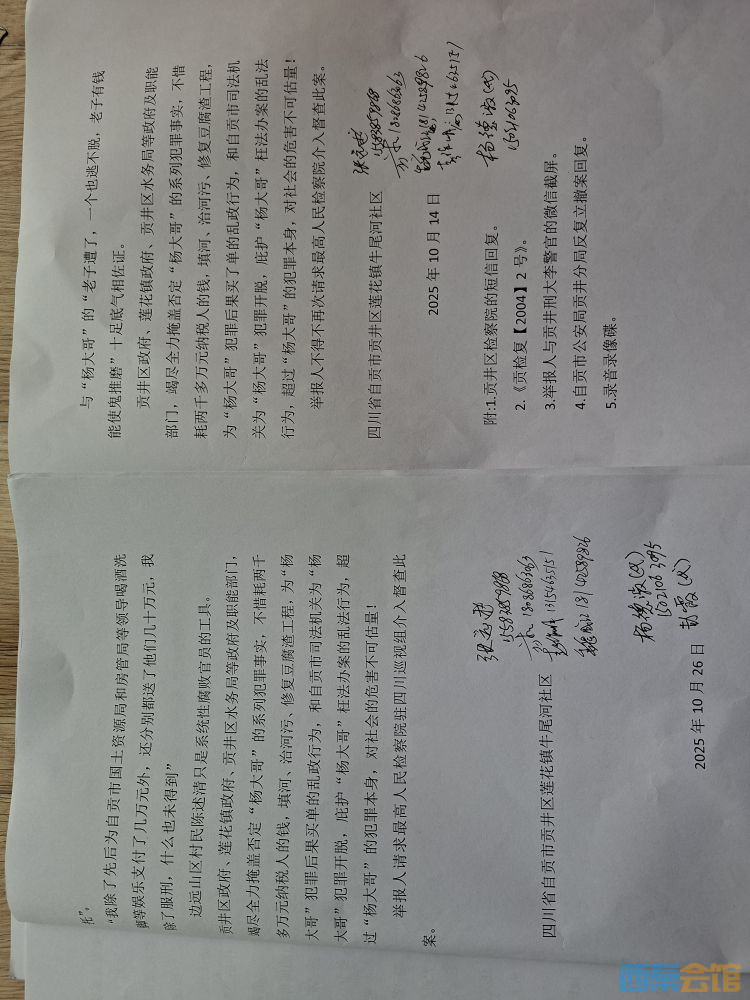 与“杨大哥”的“老子遭了，一个也逃不脱，老子有钱
能使鬼推磨”十足底气相佐证。
贡井区政府、莲花镇政府、贡井区水务局等政府及职能
部门，竭尽全力掩盖否定“杨大哥”的系列犯罪事实，不惜
耗两千多万元纳税人的钱，填河、治河污、修复豆腐渣工程，
为“杨大哥”犯罪后果买了单的乱政行为，和自贡市司法机
关为“杨大哥”犯罪开脱，庇护“杨大哥”枉法办案的乱法
行为，超过“杨大哥”的犯罪本身，对社会的危害不可估量！
举报人不得不再次请求最高人民检察院介入督查此案。
四川省自贡市贡井区莲花镇牛尾河社区
2025 年 10 月 14 日
杨德淑(代)
附:1.贡井区检察院的短信回复。
2.《贡检复【2004】2 号》。
3.举报人与贡井刑大李警官的微信截屏。
4.自贡市公安局贡井分局反复立撤案回复。
5.录音录像碟。
托”。
“我除了先后为自贡市国土资源局和房管局等领导喝酒洗
脚等娱乐支付了几万元外，还分别都送了他们几十万元，我
除了服刑，什么也未得到”
边远山区村民陈述清只是系统性腐败官员的工具。
贡井区政府、莲花镇政府、贡井区水务局等政府及职能部门，
竭尽全力掩盖否定“杨大哥”的系列犯罪事实，不惜耗两千
多万元纳税人的钱，填河、治河污、修复豆腐渣工程，为“杨
大哥”犯罪后果买单的乱政行为，和自贡市司法机关为“杨
大哥”犯罪开脱，庇护“杨大哥”枉法办案的乱法行为，超
过“杨大哥”的犯罪本身，对社会的危害不可估量！
举报人请求最高人民检察院驻四川巡视组介入督查此
案。
四川省自贡市贡井区莲花镇牛尾河社区
18142589826
杨德淑(代)
2025 年 10 月 26 日
西祠会馆